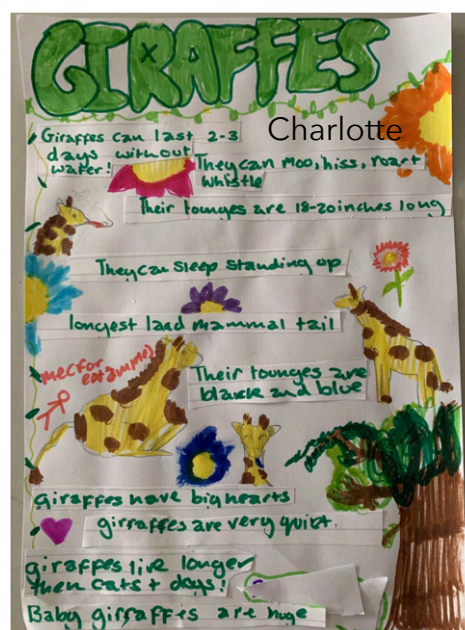 GIRAFFES
Charlotte
Giraffes can last 2-3
days without
water!
They can moo, hiss, roart
whistle
Their tounges are 18-20 inches long
They can sleep standing up
longest land mammal tail
me (for
example)
Their tounges are
black and blue
giraffes have big hearts
girraffes are very quiet
giraffes live longer
then cats + days!
Baby girffes are huge